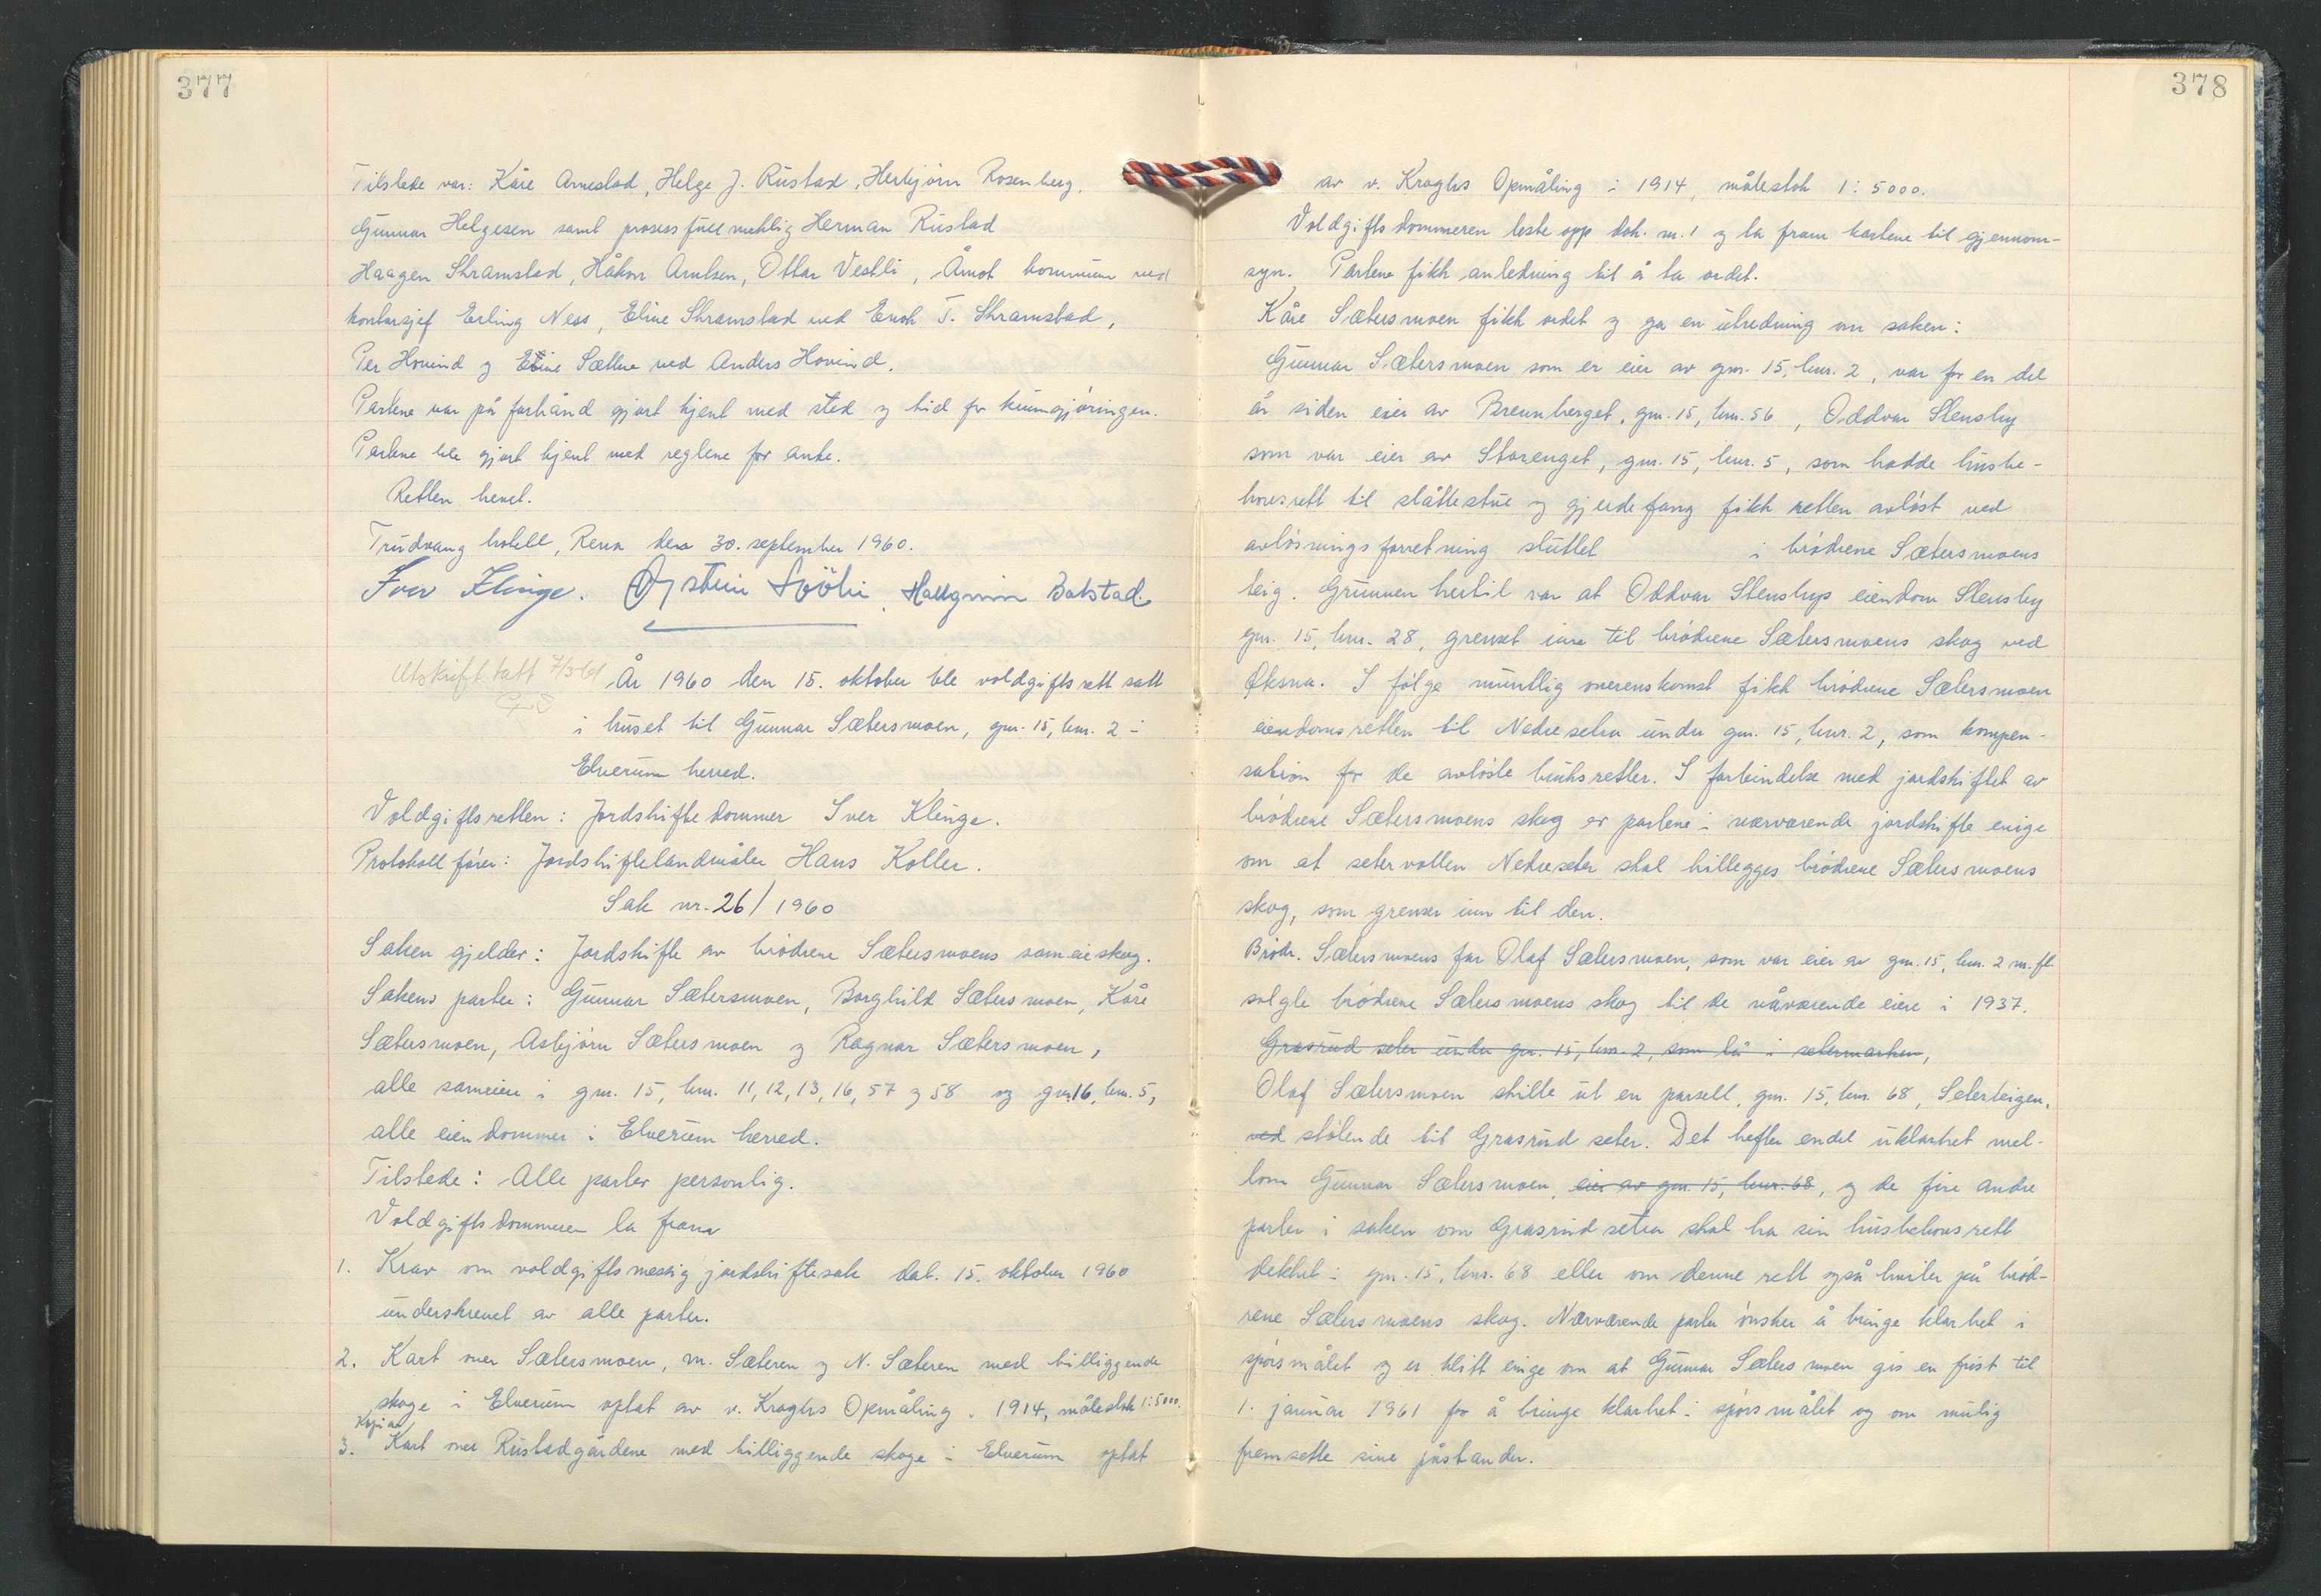 377
Tilstede var: Kåre Arnestad, Helge J. Rustad, Herbjörn Rosenberg,
Gunnar Helgesen samt prosessfullmektig Herman Rustad
Haagen Skramstad, Håkon Arntsen, Ottar Vestli, Åmot kommune ved
kontorsjef Erling Ness, Eline Skramstad ved Enok T. Skramstad,
Per Hovind og Eline Sætre ved Anders Hovind.
Partene var på forhånd gjort kjent med sted og tid for kunngjöringen.
Partene ble gjort kjent med reglene for anke.
Retten hevet.
Trudvang hotell, Rena den 30. september 1960.
Iver Klinge. Øystein Hallgrim Bolstad.
Utskrift tatt 7/3-61
År 1960 den 15. oktober ble voldgiftsrett satt
i huset til Gunnar Sætersmoen, gnr. 15, bnr. 2 i
Elverum herred.
Voldgiftsretten: Jordskiftedommer Iver Klinge.
Protokollförer: Jordskiftelandmåler Hans Koller.
Sak nr. 26/1960
Saken gjelder: Jordskifte av brödrene Sætersmoens sameieskog.
Sakens parter: Gunnar Sætersmoen, Borghild Sætersmoen, Kåre
Sætersmoen, Asbjörn Sætersmoen og Ragnar Sætersmoen,
alle sameiere i gnr. 15, bnr. 11, 12, 13, 16, 57 og 58 og gnr. 16, bnr. 5,
alle eiendommer i Elverum herred.
Tilstede: Alle parter personlig.
Voldgiftsdommeren la fram
1. Krav om voldgiftsmessig jordskiftesak dat. 15. oktober 1960
underskrevet av alle parter.
2. Kart over Sætersmoen, m. Sæteren og N. Sæteren med tilliggende
skoge i Elverum optat av v. Kraghs Opmåling i 1914, målestok 1:5000.
Kopi av
3. Kart over Rustadgårdene med tilliggende skoge i Elverum optat
378
av v. Kraghs Opmåling i 1914, målestok 1:5000.
Voldgiftsdommeren leste opp dok. nr. 1 og la fram kartene til gjennom-
syn. Partene fikk anledning til å ta ordet.
Kåre Sætersmoen fikk ordet og ga en utredning om saken:
Gunnar Sætersmoen som er eier av gnr. 15, bnr. 2, var for en del
år siden eier av Brennberget, gnr. 15, bnr. 56, Oddvar Stensby
som var eier av Storenget, gnr. 15, bnr. 5, som hadde husbe-
hovsrett til slåttestue og gjerdefang fikk retten avlöst ved
avlösningsforretning sluttet i brödrene Sætersmoens
teig. Grunnen hertil var at Oddvar Stensbys eiendom Stensby
gnr. 15, bnr. 28, grenset inn til brödrene Sætersmoens skog ved
Øksna. I fölge muntlig overenskomst fikk brödrene Sætersmoen
eiendomsretten til Nedresetra under gnr. 15, bnr. 2, som kompen-
sasjon for de avlöste bruksretter. I forbindelse med jordskiftet av
brödrene Sætersmoens skog er partene i nærværende jordskifte enige
om at setervollen Nedreseter skal tillegges brödrene Sætersmoens
skog, som grenser inn til den.
Brödr. Sætersmoens far Olaf Sætersmoen, som var eier av gnr. 15, bnr. 2 m.fl.
solgte brödrene Sætersmoens skog til de nåværende eiere i 1937.
Grasrud seter under gnr. 15, bnr. 2, som lå i setermarken,
Olaf Sætersmoen skilte ut en parsell, gnr. 15, bnr. 68, Seterteigen,
ved stötende til Grasrud seter. Det hefter endel uklarhet mel-
lom Gunnar Sætersmoen, eier av gnr. 15, bnr. 68, og de fire andre
parter i saken om Grasrud setra skal ha sin husbehovsrett
dekket i gnr. 15, bnr. 68 eller om denne rett også hviler på bröd-
rene Sætersmoens skog. Nærværende parter önsker å bringe klarhet i
spörsmålet og er blitt enige om at Gunnar Sætersmoen gis en frist til
1. januar 1961 for å bringe klarhet i spörsmålet og om mulig
fremsette sine påstander.